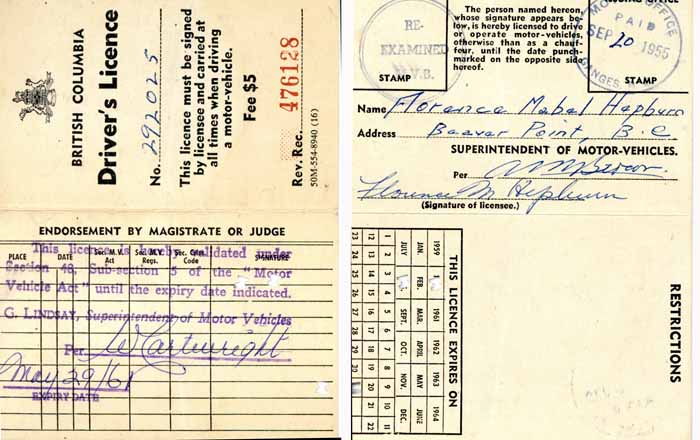 BRITISH COLUMBIA
Driver's Licence
No. 292025
This licence must be signed
by licensee and carried at
all times when driving
a motor-vehicle.
Fee $5
Rev. Rec. 476128
50M-554-8940 (16)
ENDORSEMENT BY MAGISTRATE OR JUDGE
PLACE DATE Sec. M.V. Act Sec. M.V. Regs. Sec. Crim. Code SIGNATURE
This licence is hereby validated under
Section 48, Sub-section 5 of the "Motor
Vehicle Act" until the expiry date indicated.
G. LINDSAY, Superintendent of Motor Vehicles
Per W Cartwright
May 29/61
EXPIRY DATE
RE-
EXAMINED
M.V.B.
STAMP
The person named hereon,
whose signature appears be-
low, is hereby licensed to drive
or operate motor-vehicles,
otherwise than as a chauf-
feur, until the date punch-
marked on the opposite side
hereof.
ISSUING OFFICE
OFFICE
PAID
SEP 20 1955
GANGES
STAMP
Name Florence Mabel Hepburn
Address Beaver Point, B.C
SUPERINTENDENT OF MOTOR-VEHICLES.
Per
Florence M Hepburn
(Signature of licensee.)
THIS LICENCE EXPIRES ON
1959 1961 1962 1963 1964
JAN. FEB. MAR. APRIL MAY JUNE
JULY SEPT. OCT. NOV. DEC.
1 2 3 4 5 6 7 8 9 10 11
12 13 14 15 16 17 18 19 20 21 22
23 24 25 26 27 28 29 30
RESTRICTIONS